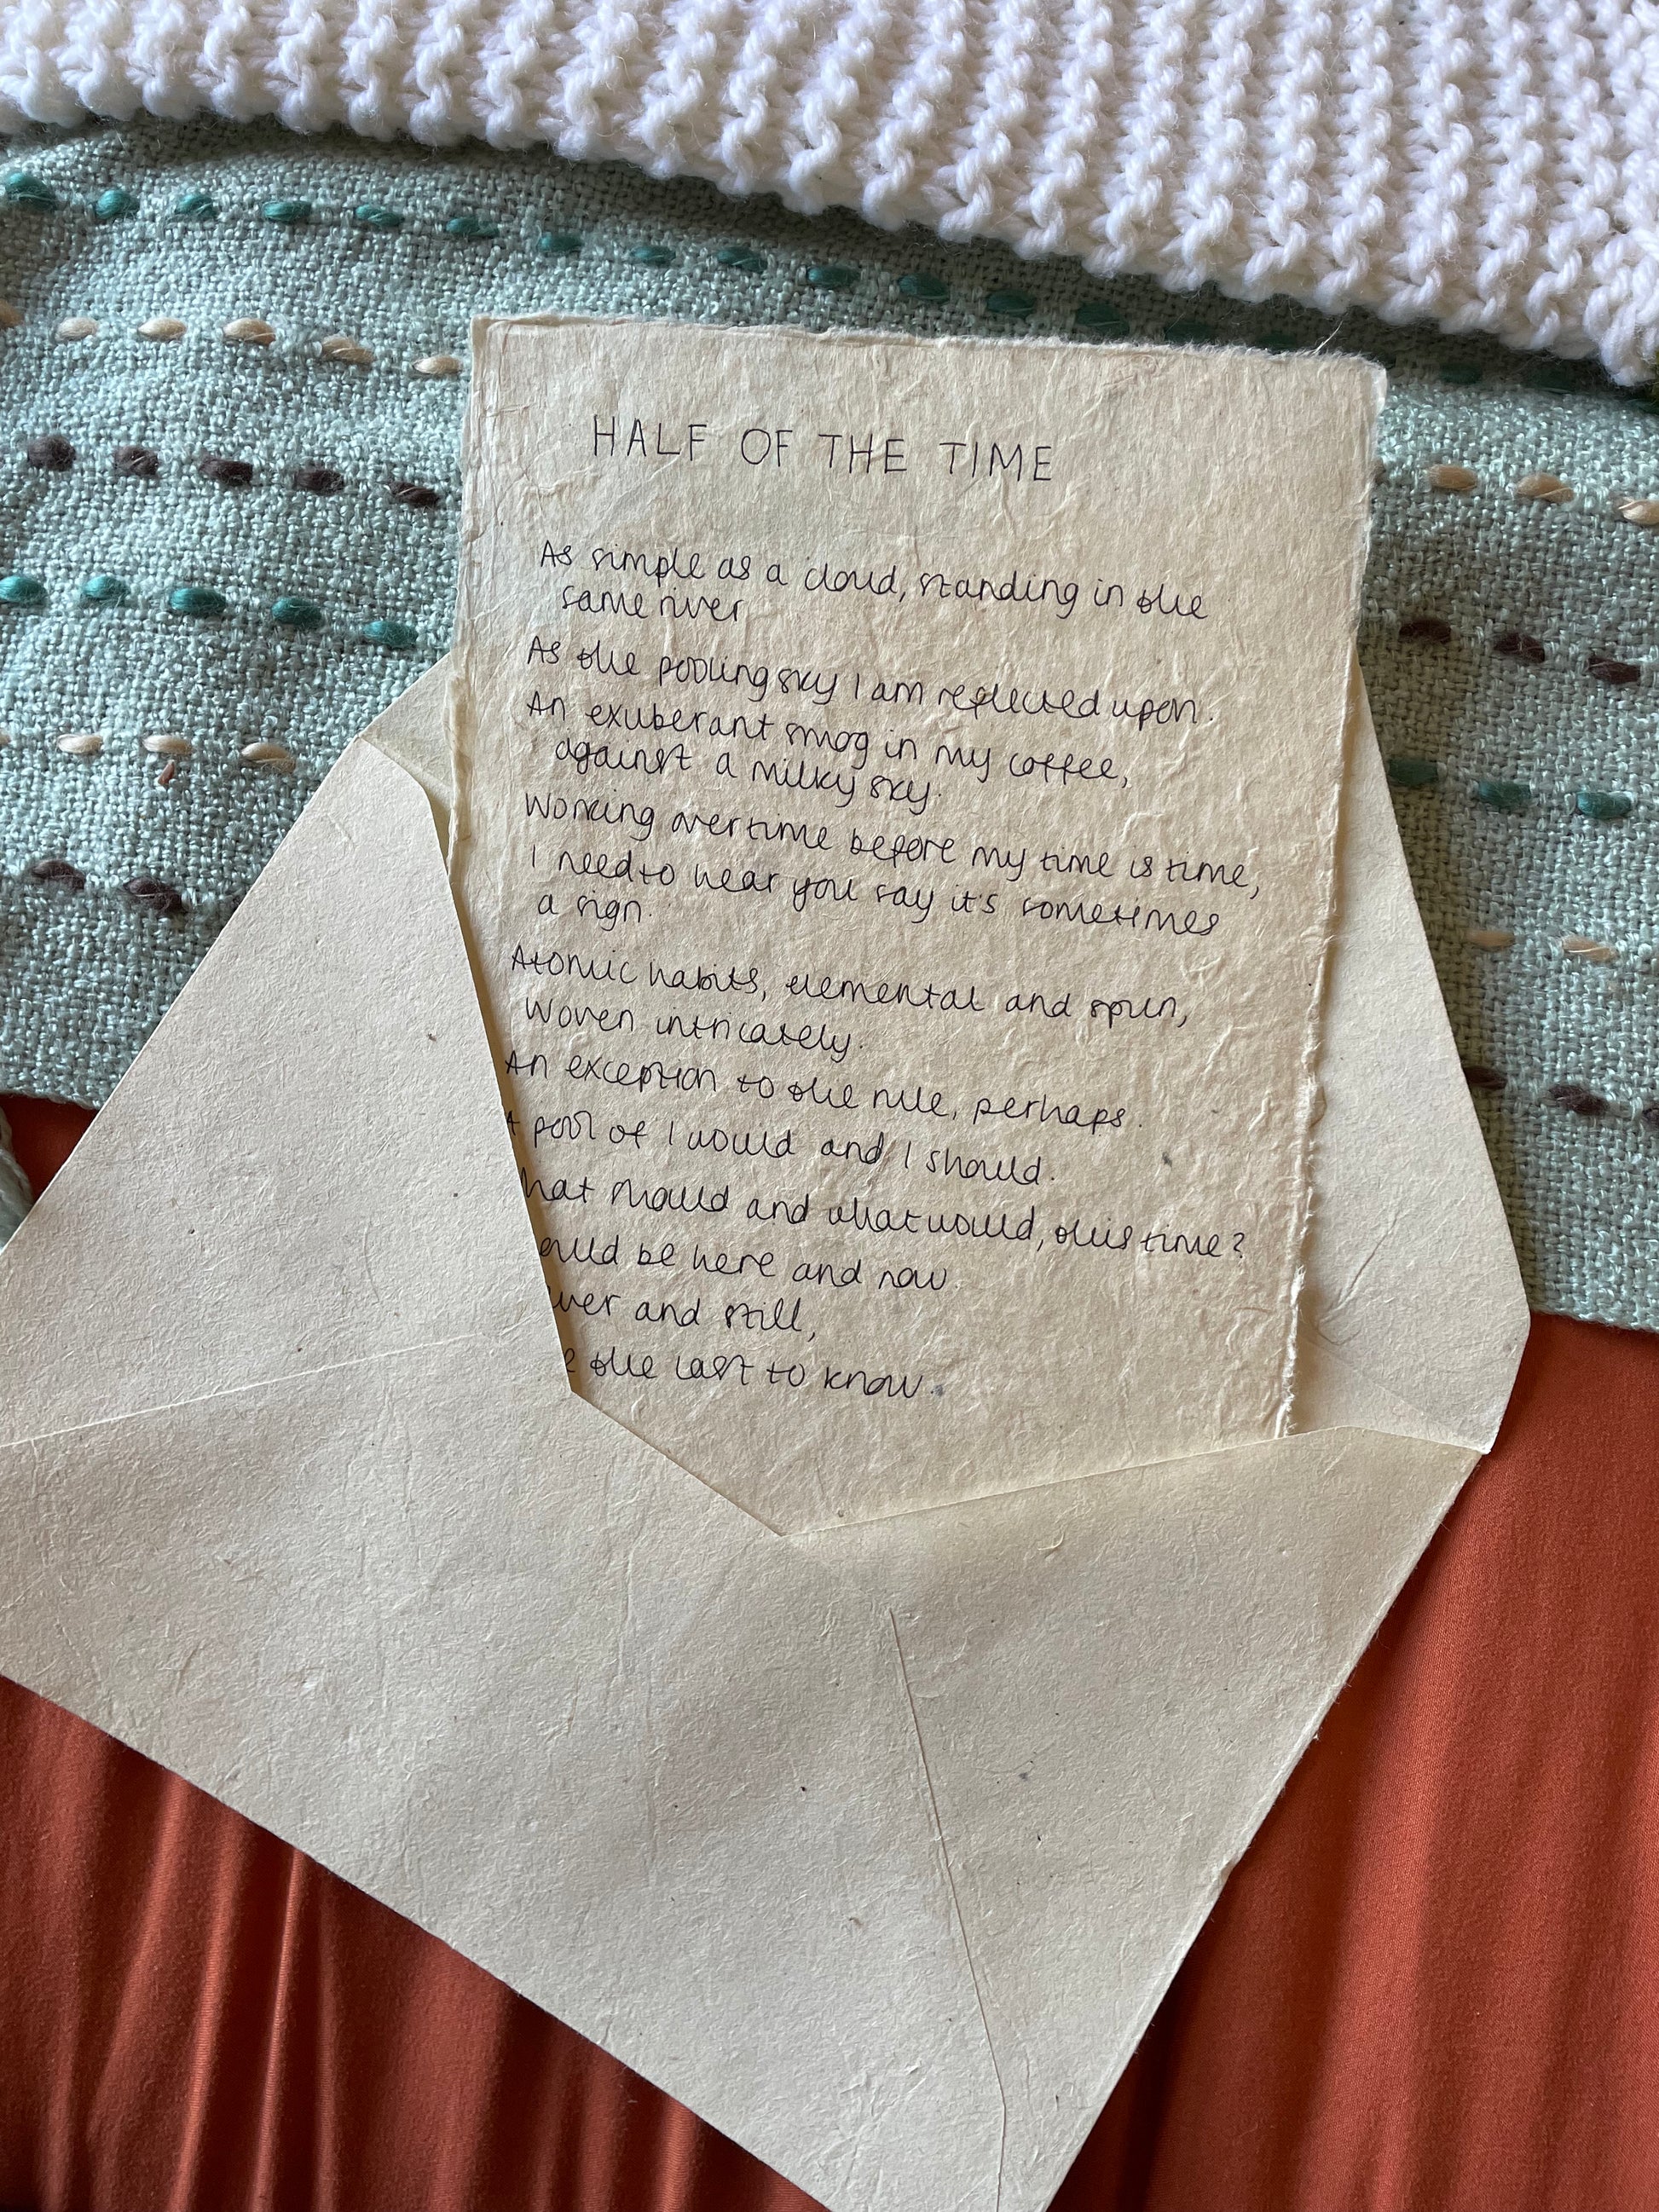 HALF OF THE TIME
As simple as a cloud, standing in the
same river
As the pooling sky I am reflected upon.
An exuberant smog in my coffee,
against a milky sky.
Working overtime before my time is time,
I need to hear you say it's sometimes
a sign.
Atomic habits, elemental and spun,
Woven intricately.
An exception to the rule, perhaps.
A pool of I would and I should.
should and what would, this time?
be here and now.
and still,
the last to know.